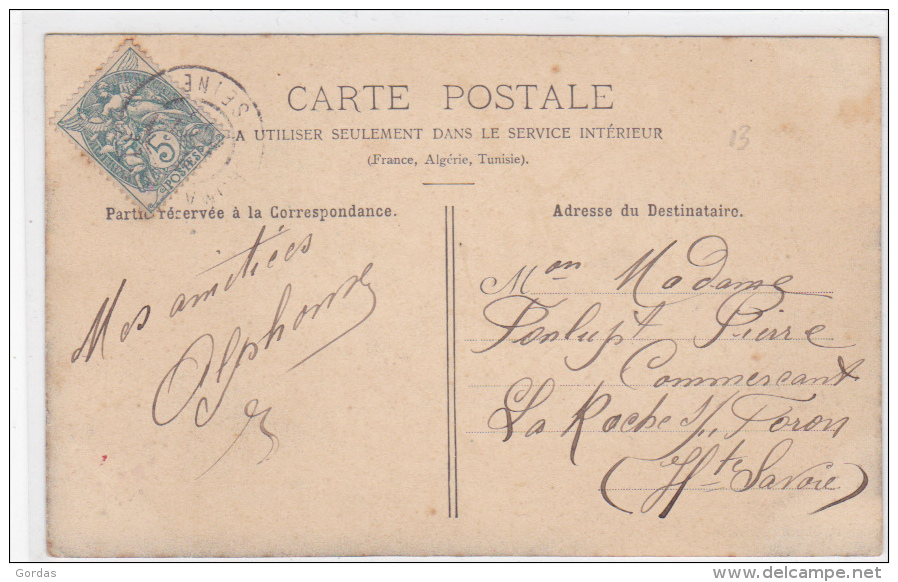 CARTE POSTALE
A UTILISER SEULEMENT DANS LE SERVICE INTÉRIEUR
(France, Algérie, Tunisie).
13
5c
POSTES
SEINE
Partie réservée à la Correspondance.
Mes amitiées
Alphonse
Adresse du Destinataire.
Mon Madame
Fonlupt Pierre
Commercant
La Roche s/ Foron
(Hte Savoie)
Gordas
delcampe.net